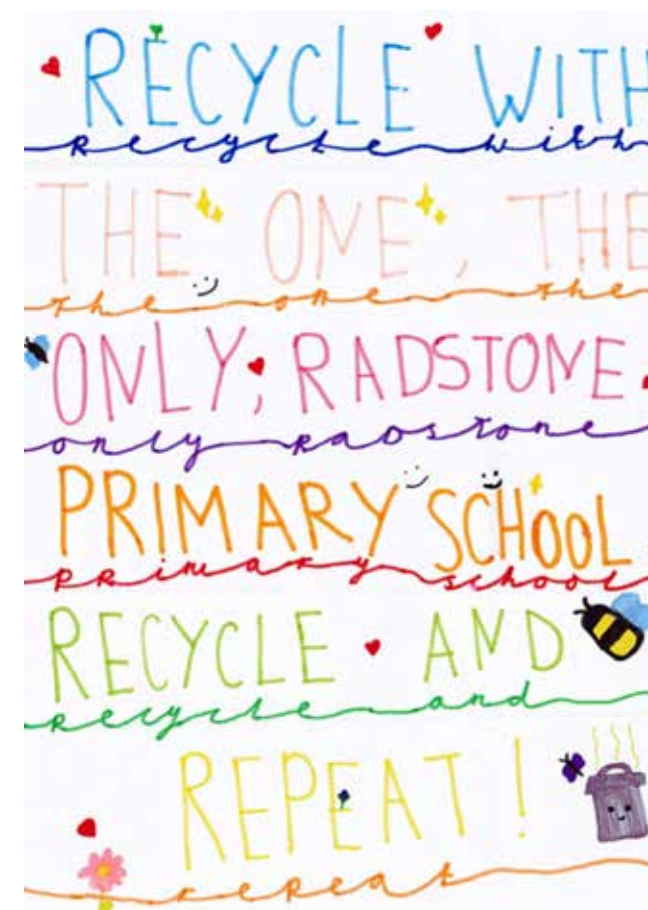 RECYCLE WITH
recycle with
THE ONE, THE
the one the
ONLY, RADSTONE
only radstone
PRIMARY SCHOOL
primary school
RECYCLE AND
recycle and
REPEAT!
repeat